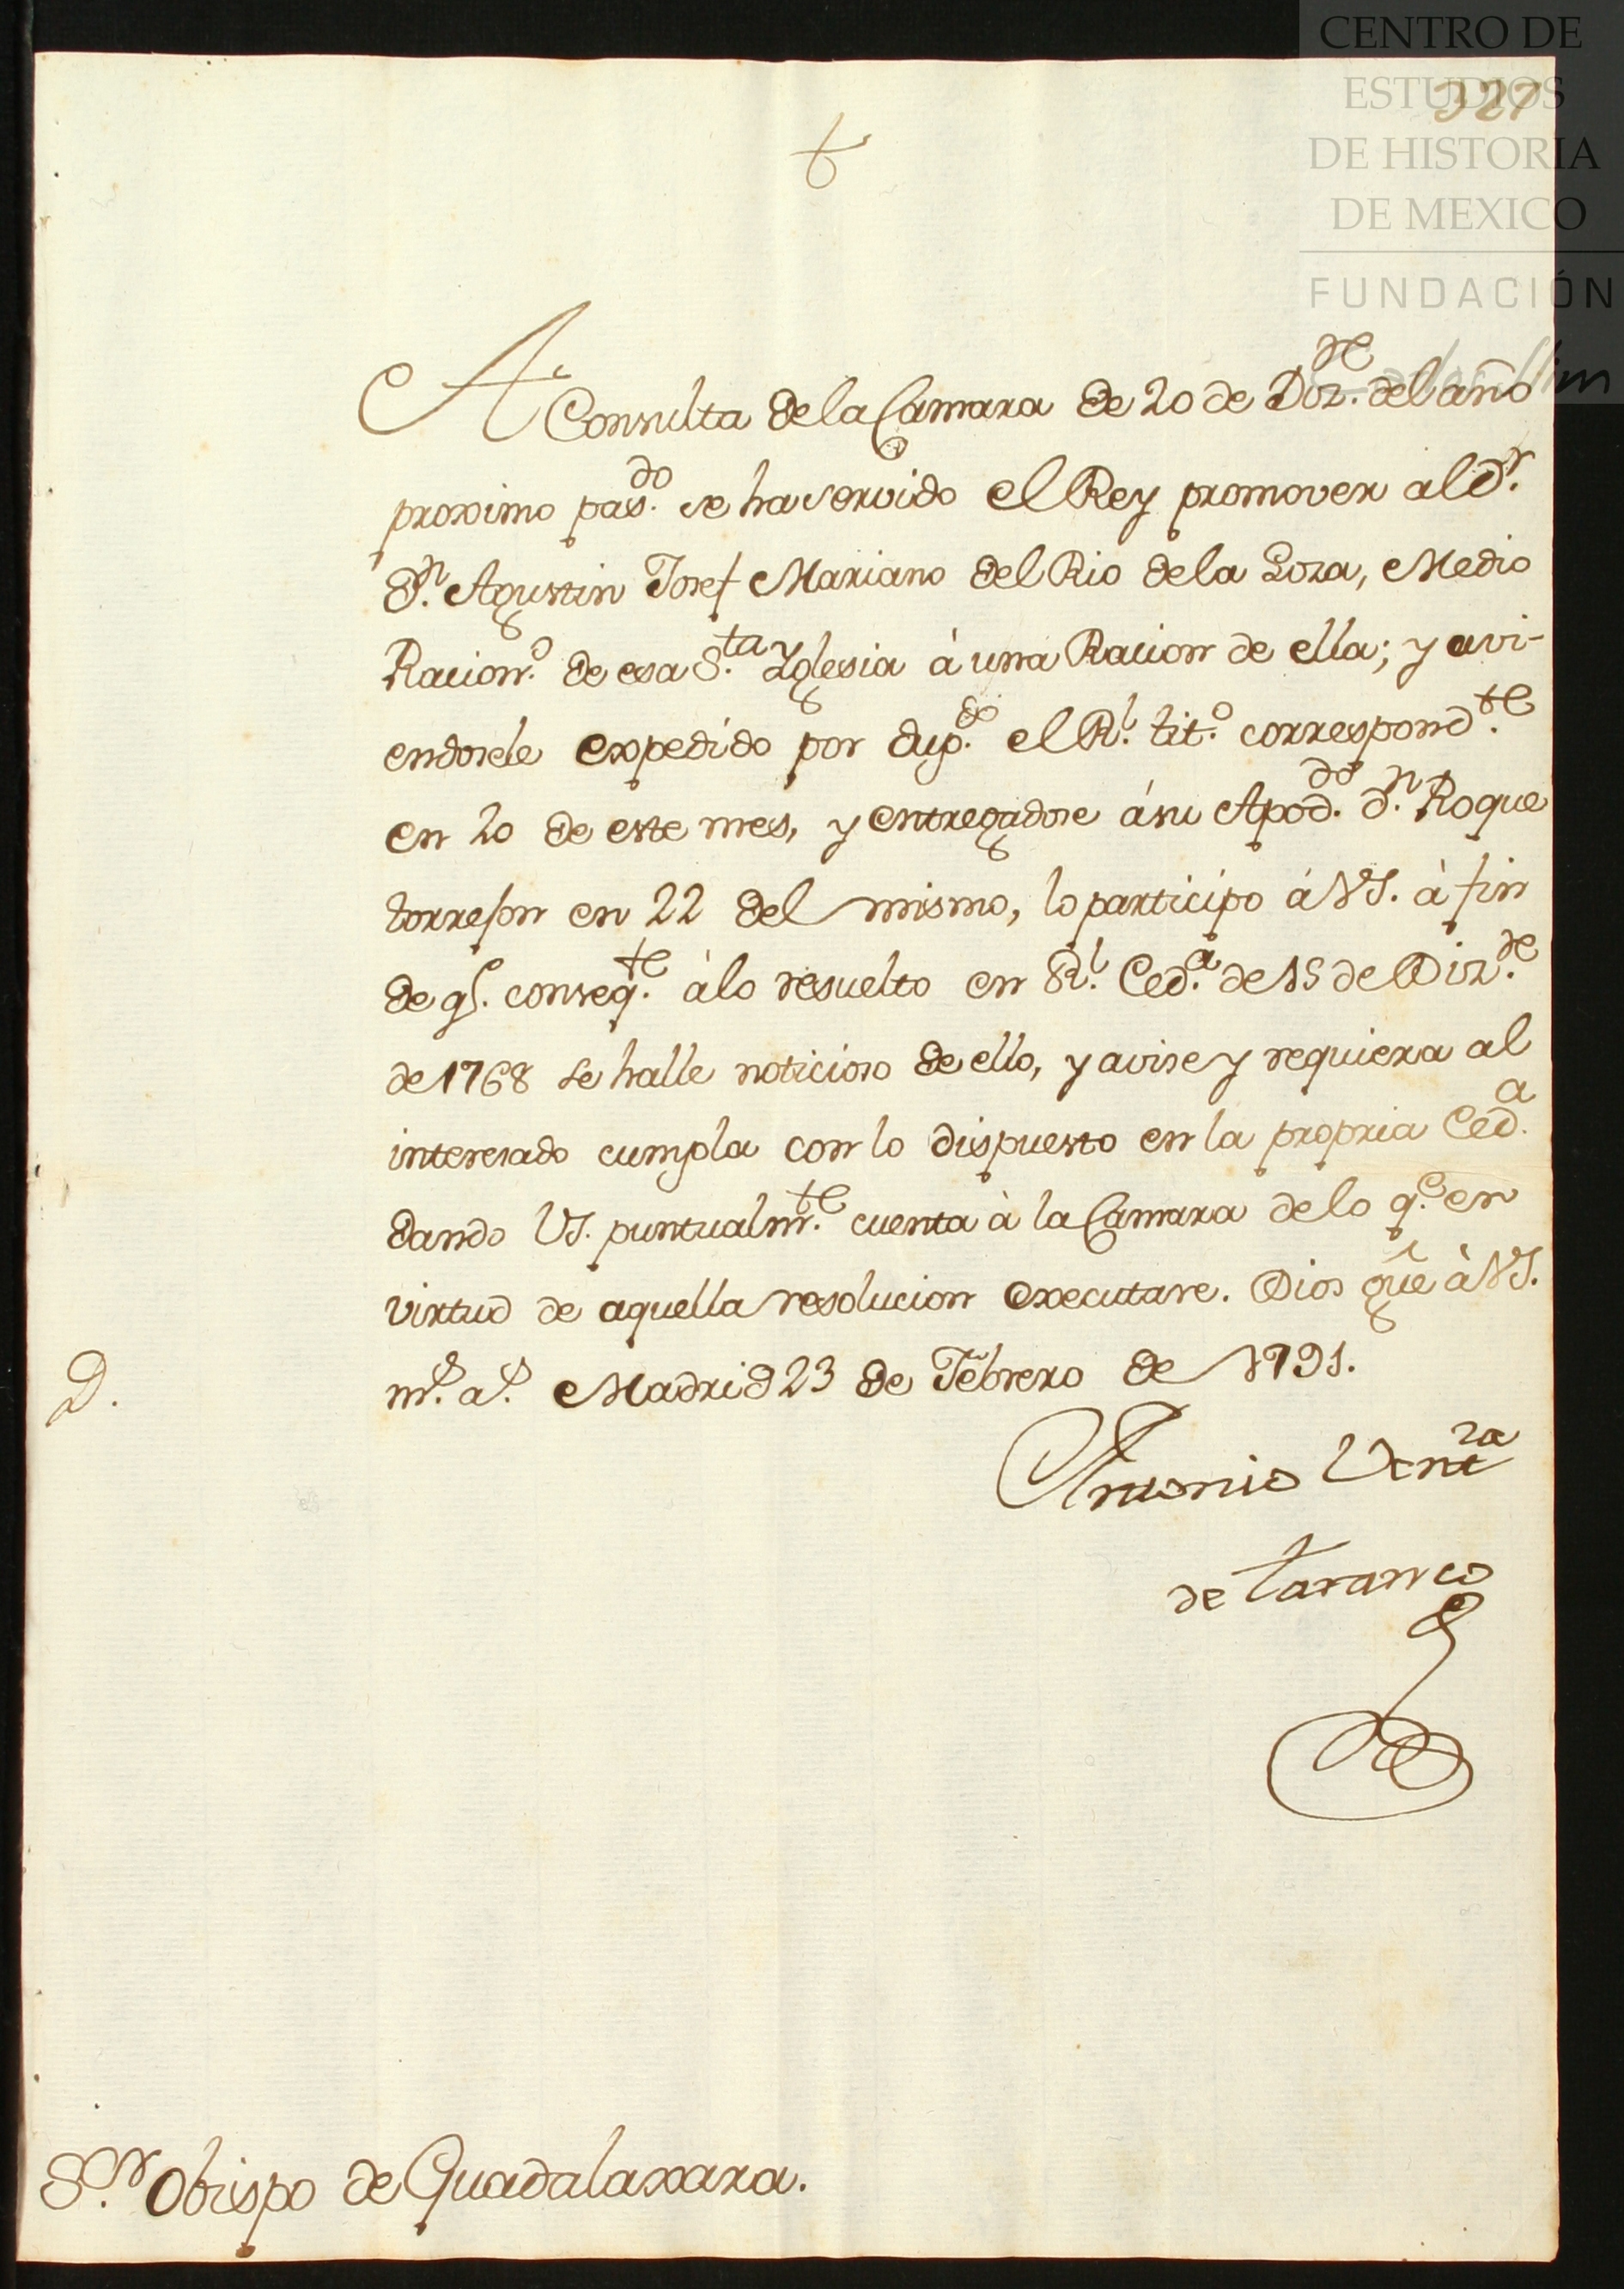 CENTRO DE
ESTUDIOS
DE HISTORIA
DE MEXICO
FUNDACIÓN
327
A Consulta de la Camara de 20 de Diz.re del año
proximo pas.do se ha servido el Rey promover al D.r
D.n Agustin Josef Mariano del Rio de la Loza, Medio
Racion.o de esa S.ta Yglesia à una Racion de ella; y avi-
endosele expedido por dup.do el R.l tit.o correspond.te
en 20 de este mes, y entregadose á su Apod.do D.n Roque
torrejon en 22 del mismo, lo participo á VS. à fin
de q.e conseq.te à lo resuelto en R.l Ced.a de 15 de Diz.re
de 1768 se halle noticioso de ello, y avise y requiera al
interesado cumpla con lo dispuesto en la propria Ced.a
dando VS. puntualm.te cuenta à la Camara de lo q.e en
virtud de aquella resolucion executare. Dios gue à VS.
m.s a.s Madrid 23 de Febrero de 1791.
D.
Antonio Vent.ra
de taranco
S.or Obispo de Guadalaxara.